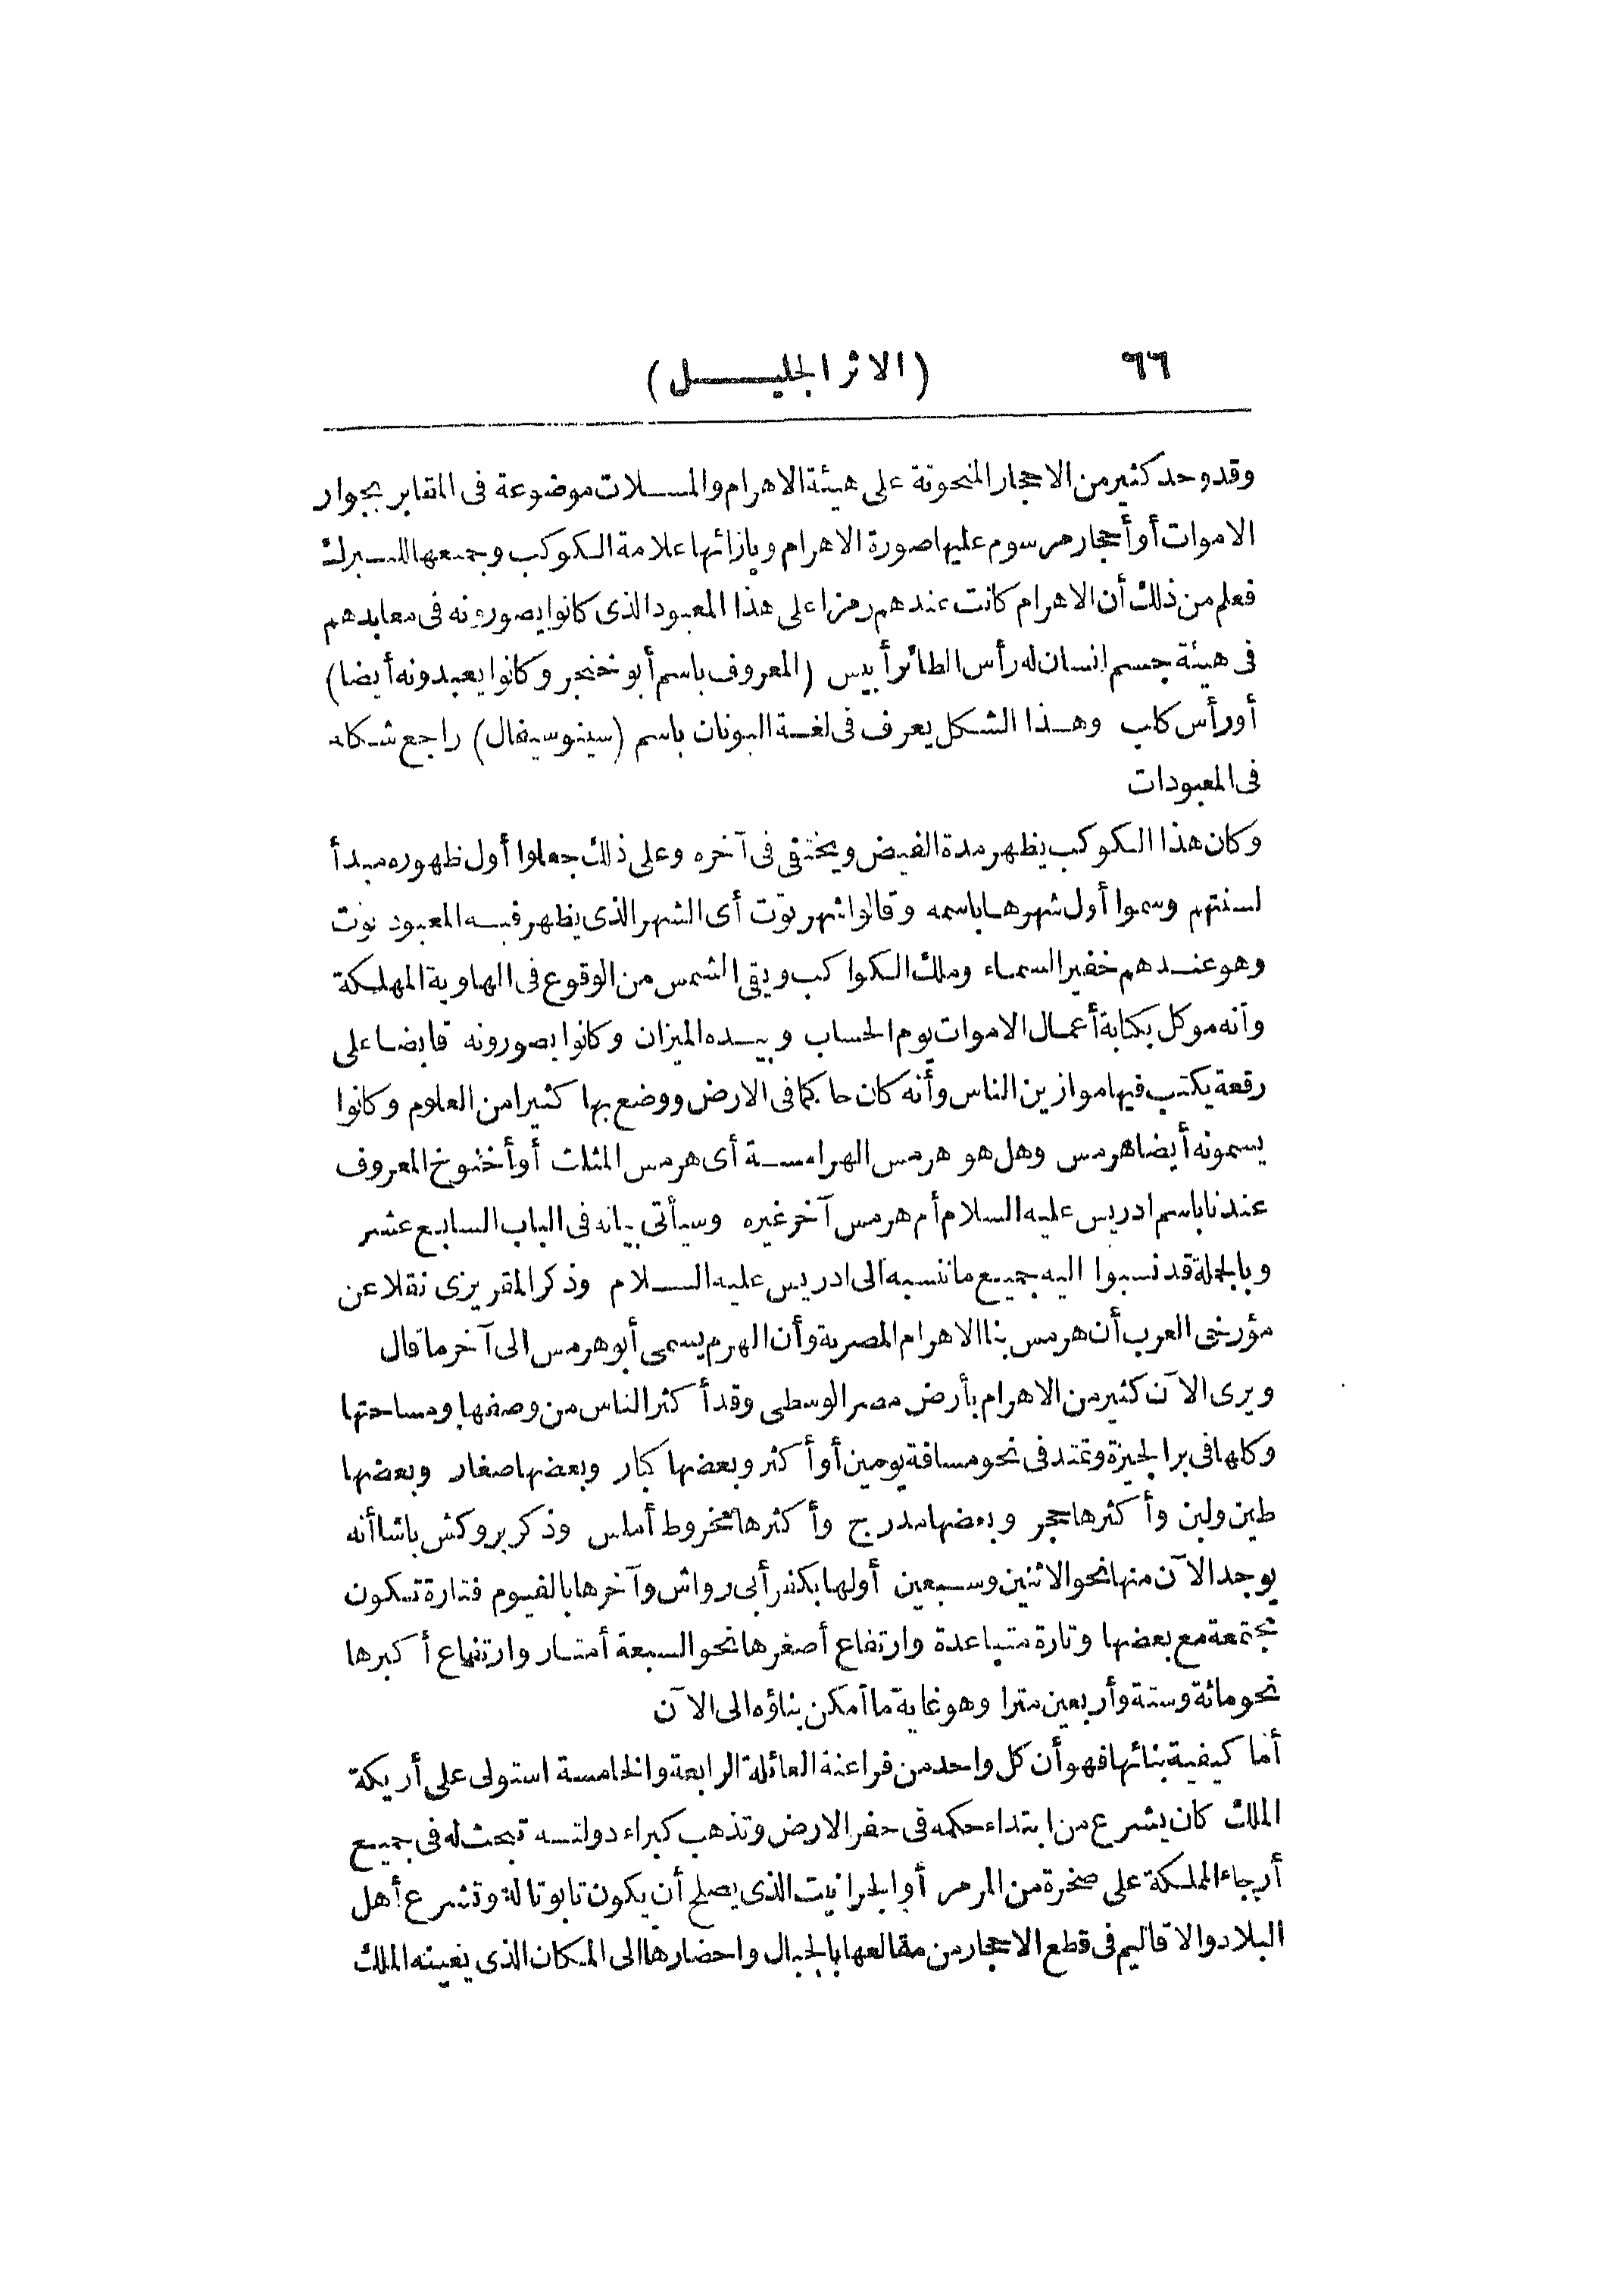 ٦٦ (الاثر الجليل)
وقد وجد كثير من الاحجار المنحوتة على هيئة الاهرام والمسلات موضوعة فى المقابر بجوار
الاموات أو أحجار مرسوم عليها صورة الاهرام وبازائها علامة الكوكب وجميعها للتبرك
فعلم من ذلك أن الاهرام كانت عندهم رمزا على هذا المعبود الذى كانوا يصورونه فى معابدهم
فى هيئة جسم انسان له رأس الطائر أبيس (المعروف باسم أبو خنجر وكانوا يعبدونه أيضا)
أو رأس كلب وهذا الشكل يعرف فى لغة اليونان باسم (سينوسيفال) راجع شكله
فى المعبودات
وكان هذا الكوكب يظهر مدة الفيض ويختفى فى آخره وعلى ذلك جعلوا أول ظهوره مبدأ
لسنتهم وسموا أول شهرها باسمه وقالوا شهر توت أى الشهر الذى يظهر فيه المعبود توت
وهو عندهم خفير السماء وملك الكواكب ويقى الشمس من الوقوع فى الهاوية المهلكة
وأنه موكل بكتابة أعمال الاموات يوم الحساب وبيده الميزان وكانوا يصورونه قابضا على
رقعة يكتب فيها موازين الناس وأنه كان حاكما فى الارض ووضع بها كثيرا من العلوم وكانوا
يسمونه أيضا هرمس وهل هو هرمس الهرامسة أى هرمس المثلث أو أخنوخ المعروف
عندنا باسم ادريس عليه السلام أم هرمس آخر غيره وسيأتى بيانه فى الباب السابع عشر
وبالجملة قد نسبوا اليه جميع ما ننسبه الى ادريس عليه السلام وذكر المقريزى نقلا عن
مؤرخى العرب أن هرمس بنا الاهرام المصرية وأن الهرم يسمى أبو هرمس الى آخر ما قال
ويرى الآن كثير من الاهرام بأرض مصر الوسطى وقد أكثر الناس من وصفها ومساحتها
وكلها فى بر الجيزة وتمتد فى نحو مسافة يومين أو أكثر وبعضها كبار وبعضها صغار وبعضها
طين ولبن وأكثرها حجر وبعضها مدرج وأكثرها مخروط أملس وذكر بروكش باشا أنه
يوجد الآن منها نحو الاثنين وسبعين أولها بكفر أبى رواش وآخرها بالفيوم فتارة تكون
مجتمعة مع بعضها وتارة متباعدة وارتفاع أصغرها نحو السبعة أمتار وارتفاع أكبرها
نحو مائة وستة وأربعين مترا وهو غاية ما أمكن بناؤه الى الآن
أما كيفية بنائها فهو أن كل واحد من فراعنة العائلة الرابعة والخامسة استولى على أريكة
الملك كان يشرع من ابتداء حكمه فى حفر الارض وتذهب كبراء دولته تبحث له فى جميع
أرجاء المملكة على صخرة من المرمر أو الجرانيت الذى يصلح أن يكون تابوتا له وتشرع أهل
البلاد والاقاليم فى قطع الاحجار من مقالعها بالجبال واحضارها الى المكان الذى يعينه الملك